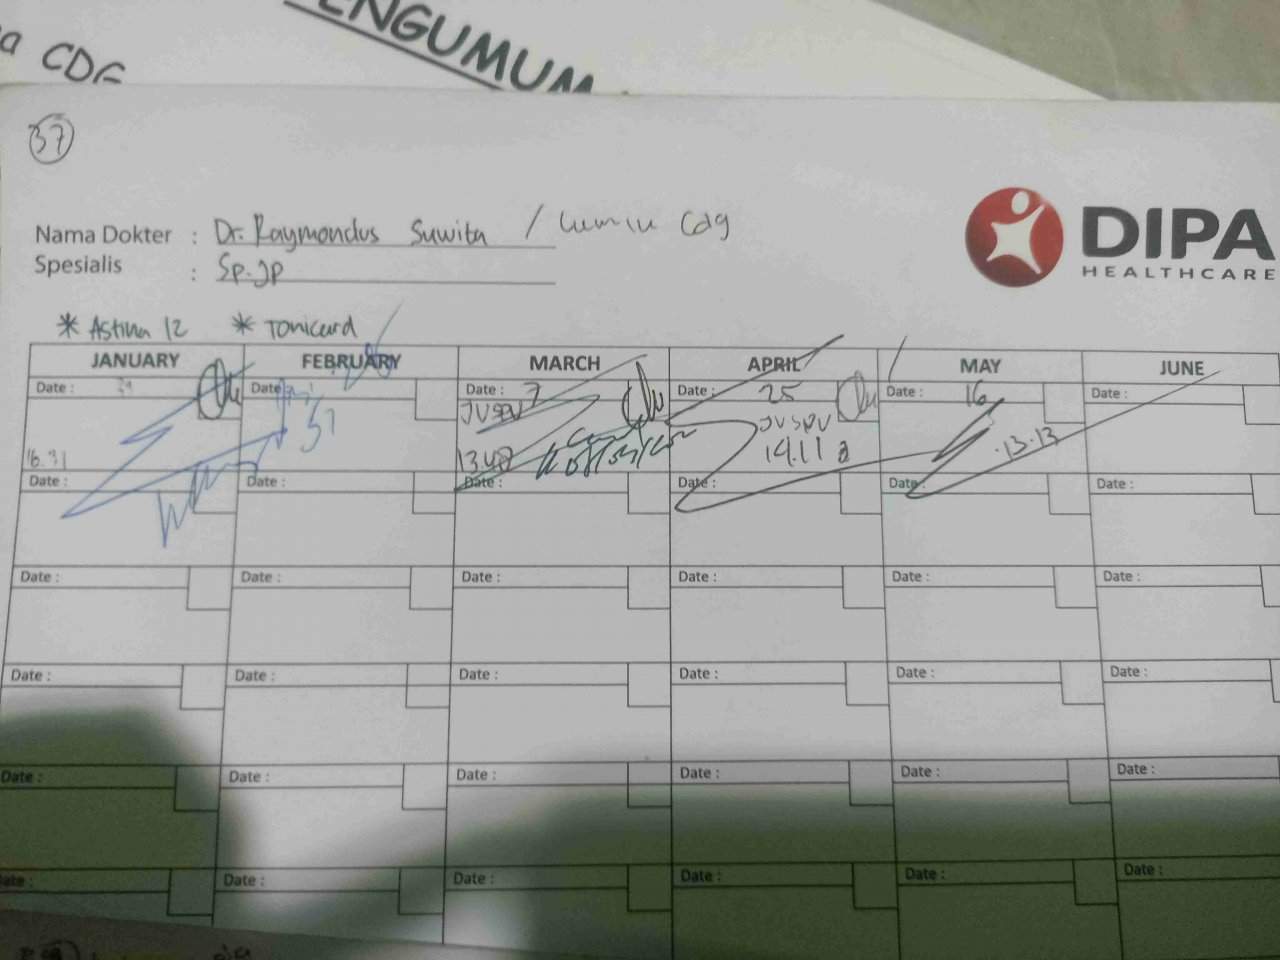 CDG
PENGUMUM
37
Nama Dokter : Dr. Raymondus Suwita / Cdg
Spesialis : Sp.Jp
DIPA
HEALTHCARE
* Astina 12 * Tonicard
JANUARY FEBRUARY MARCH APRIL MAY JUNE
Date : Date : Date : 7 Date : 25 Date : 16 Date :
JV SPV JV SPV
16.31 13.48 14.11 13.13
Date : Date : Date : Date : Date : Date :
Date : Date : Date : Date : Date : Date :
Date : Date : Date : Date : Date : Date :
Date : Date : Date : Date : Date : Date :
Date : Date : Date : Date : Date : Date :